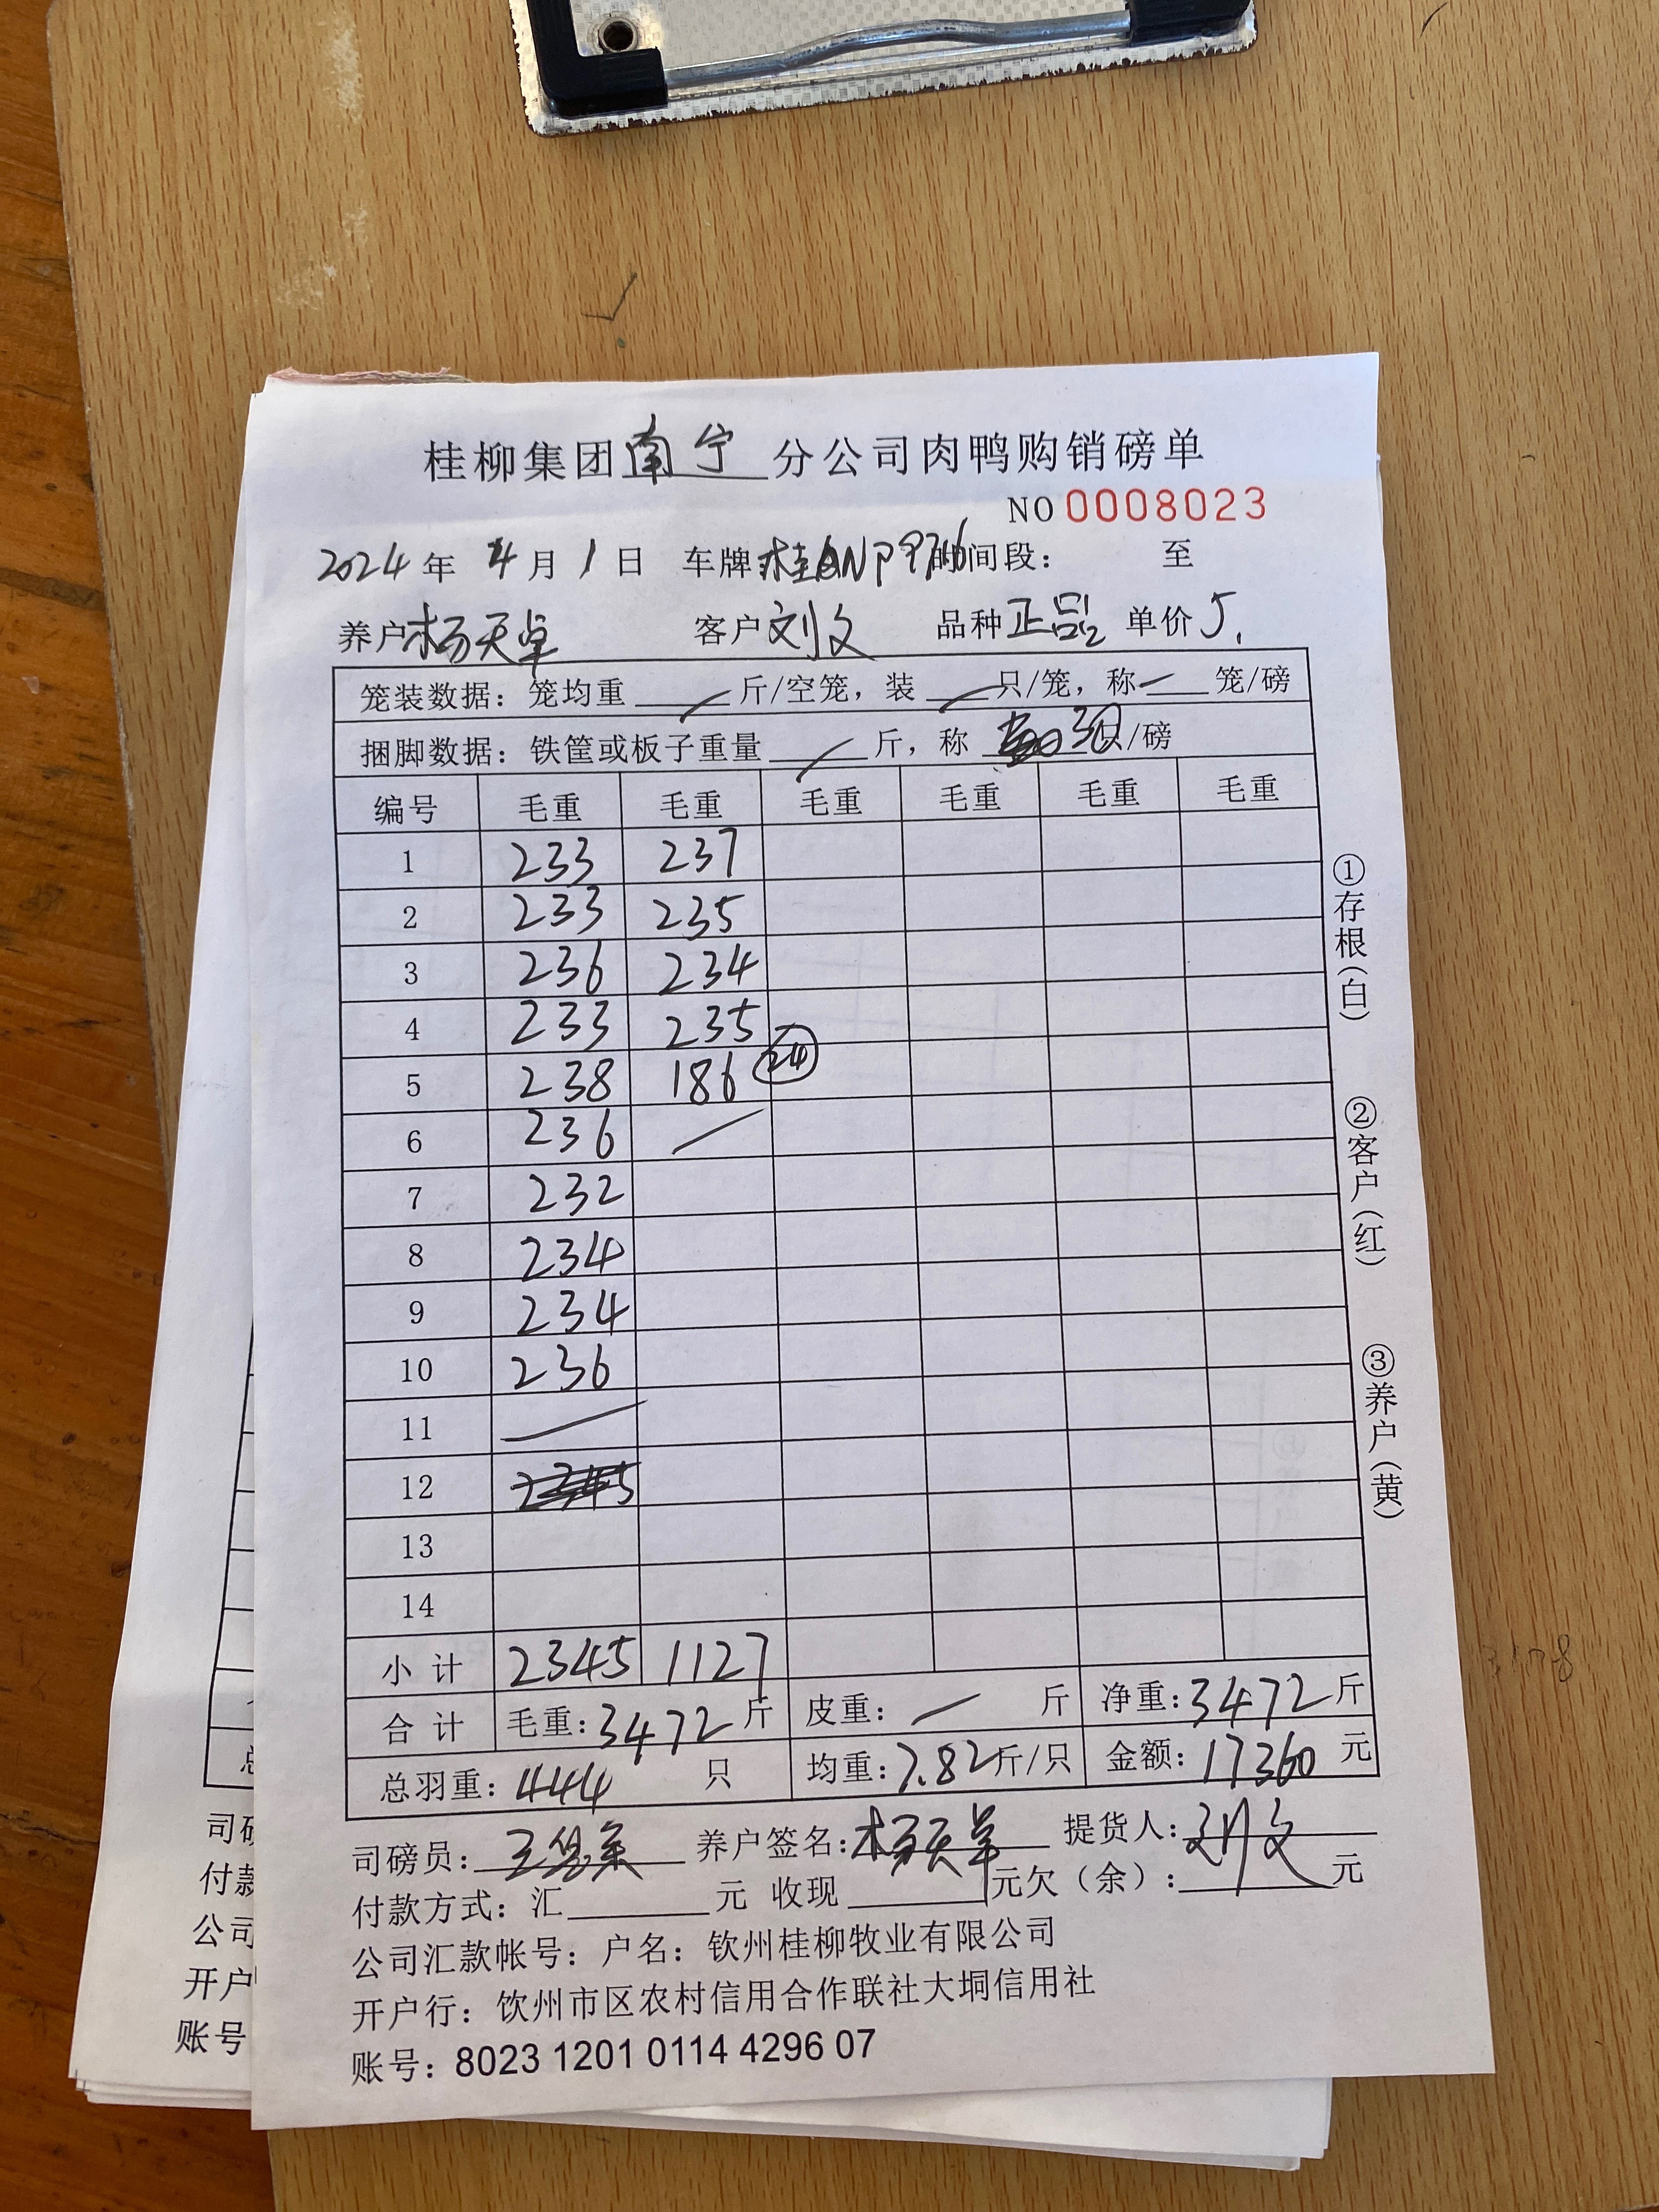 桂柳集团南宁分公司肉鸭购销磅单
NO 0008023
2024年 4月 1日 车牌桂ANP9716时间段： 至
养户杨天卓 客户刘文 品种正品2 单价5.
笼装数据：笼均重 斤/空笼，装 只/笼，称 笼/磅
捆脚数据：铁筐或板子重量 斤，称 30只/磅
编号 毛重 毛重 毛重 毛重 毛重 毛重
1 233 237
2 233 235
3 236 234
4 233 235
5 238 186 24
6 236
7 232
8 234
9 234
10 236
11
12 2345
13
14
小计 2345 1127
合计 毛重：3472斤 皮重： 斤 净重：3472斤
总羽重：444 只 均重：7.82斤/只 金额：17360 元
司磅员： 养户签名：杨天卓 提货人：刘文
付款方式：汇 元 收现 元欠（余）： 元
公司汇款帐号：户名：钦州桂柳牧业有限公司
开户行：饮州市区农村信用合作联社大垌信用社
账号：8023 1201 0114 4296 07
①存根（白）
②客户（红）
③养户（黄）
司磅
付款
公司
开户
账号
3178